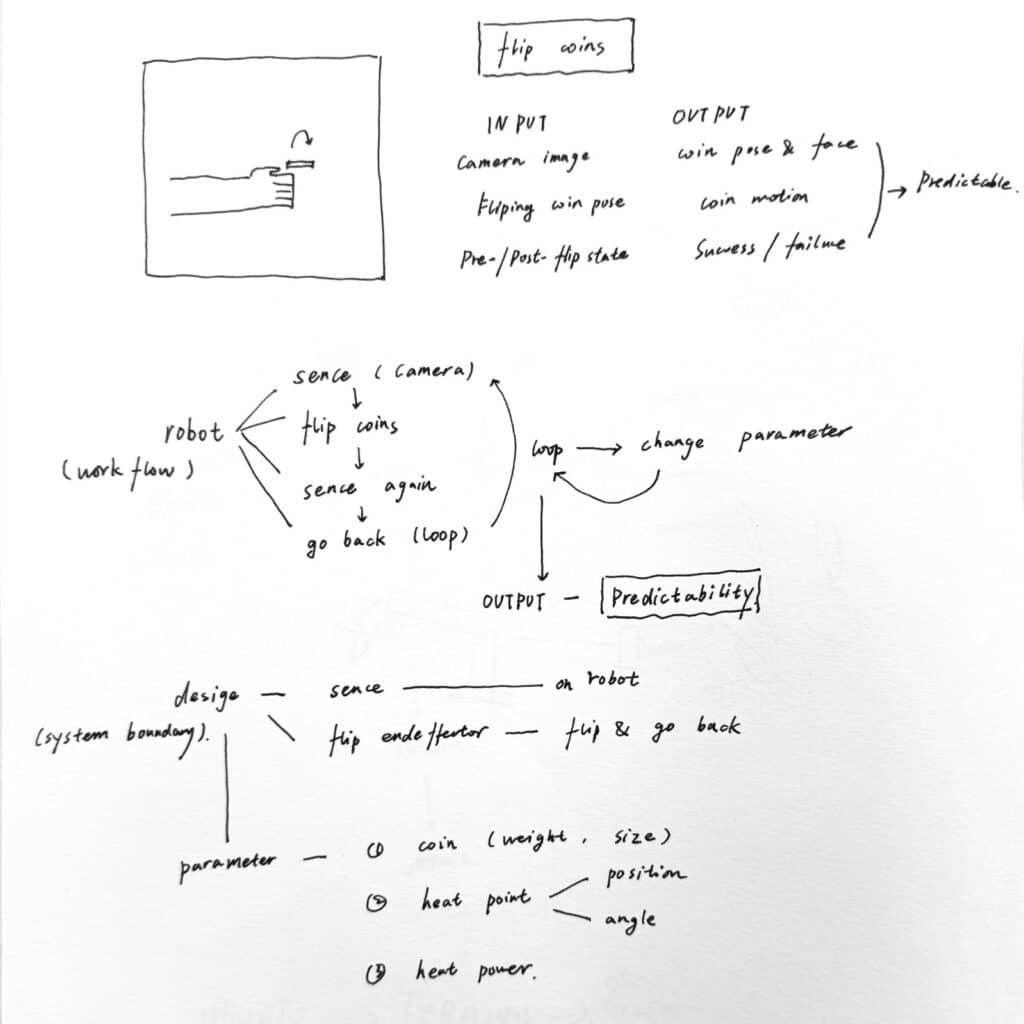 flip coins
INPUT
OUTPUT
Camera image
coin pose & face
Fliping coin pose
coin motion
Pre-/Post-flip state
Success / failure
Predictable.
sence (camera)
robot
flip coins
(work flow)
sence again
go back (loop)
loop
change parameter
OUTPUT – Predictability
desige — sence — on robot
(system boundary).
flip endeffector — flip & go back
parameter — ① coin (weight, size)
② heat point
position
angle
③ heat power.